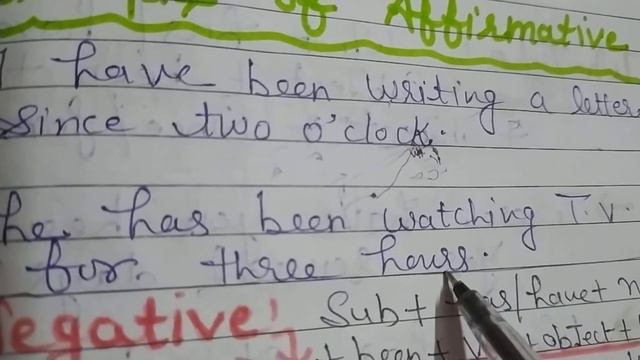 of Affirmative
I have been writing a letter
since two o'clock.
he. has been watching T.V.
for three hours.
Negative:
Sub + has/have + n
+ been + V + object +